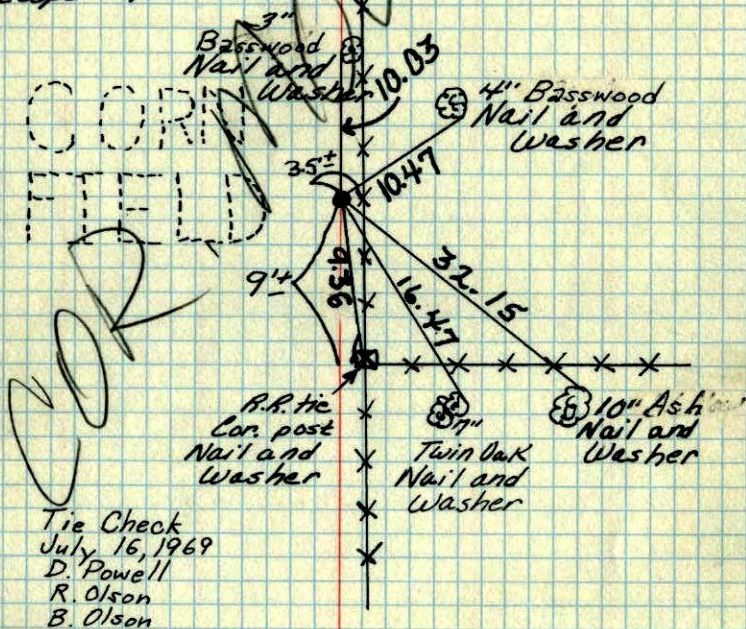 3"
Basswood
Nail and
Washer
10.03
4" Basswood
Nail and
Washer
CORN
FIELD
3.5'±
10.47
9'±
9.36
16.47
32.15
R.R. tie
Cor. post
Nail and
Washer
7"
Twin Oak
Nail and
Washer
10" Ash
Nail and
Washer
Tie Check
July 16, 1969
D. Powell
R. Olson
B. Olson